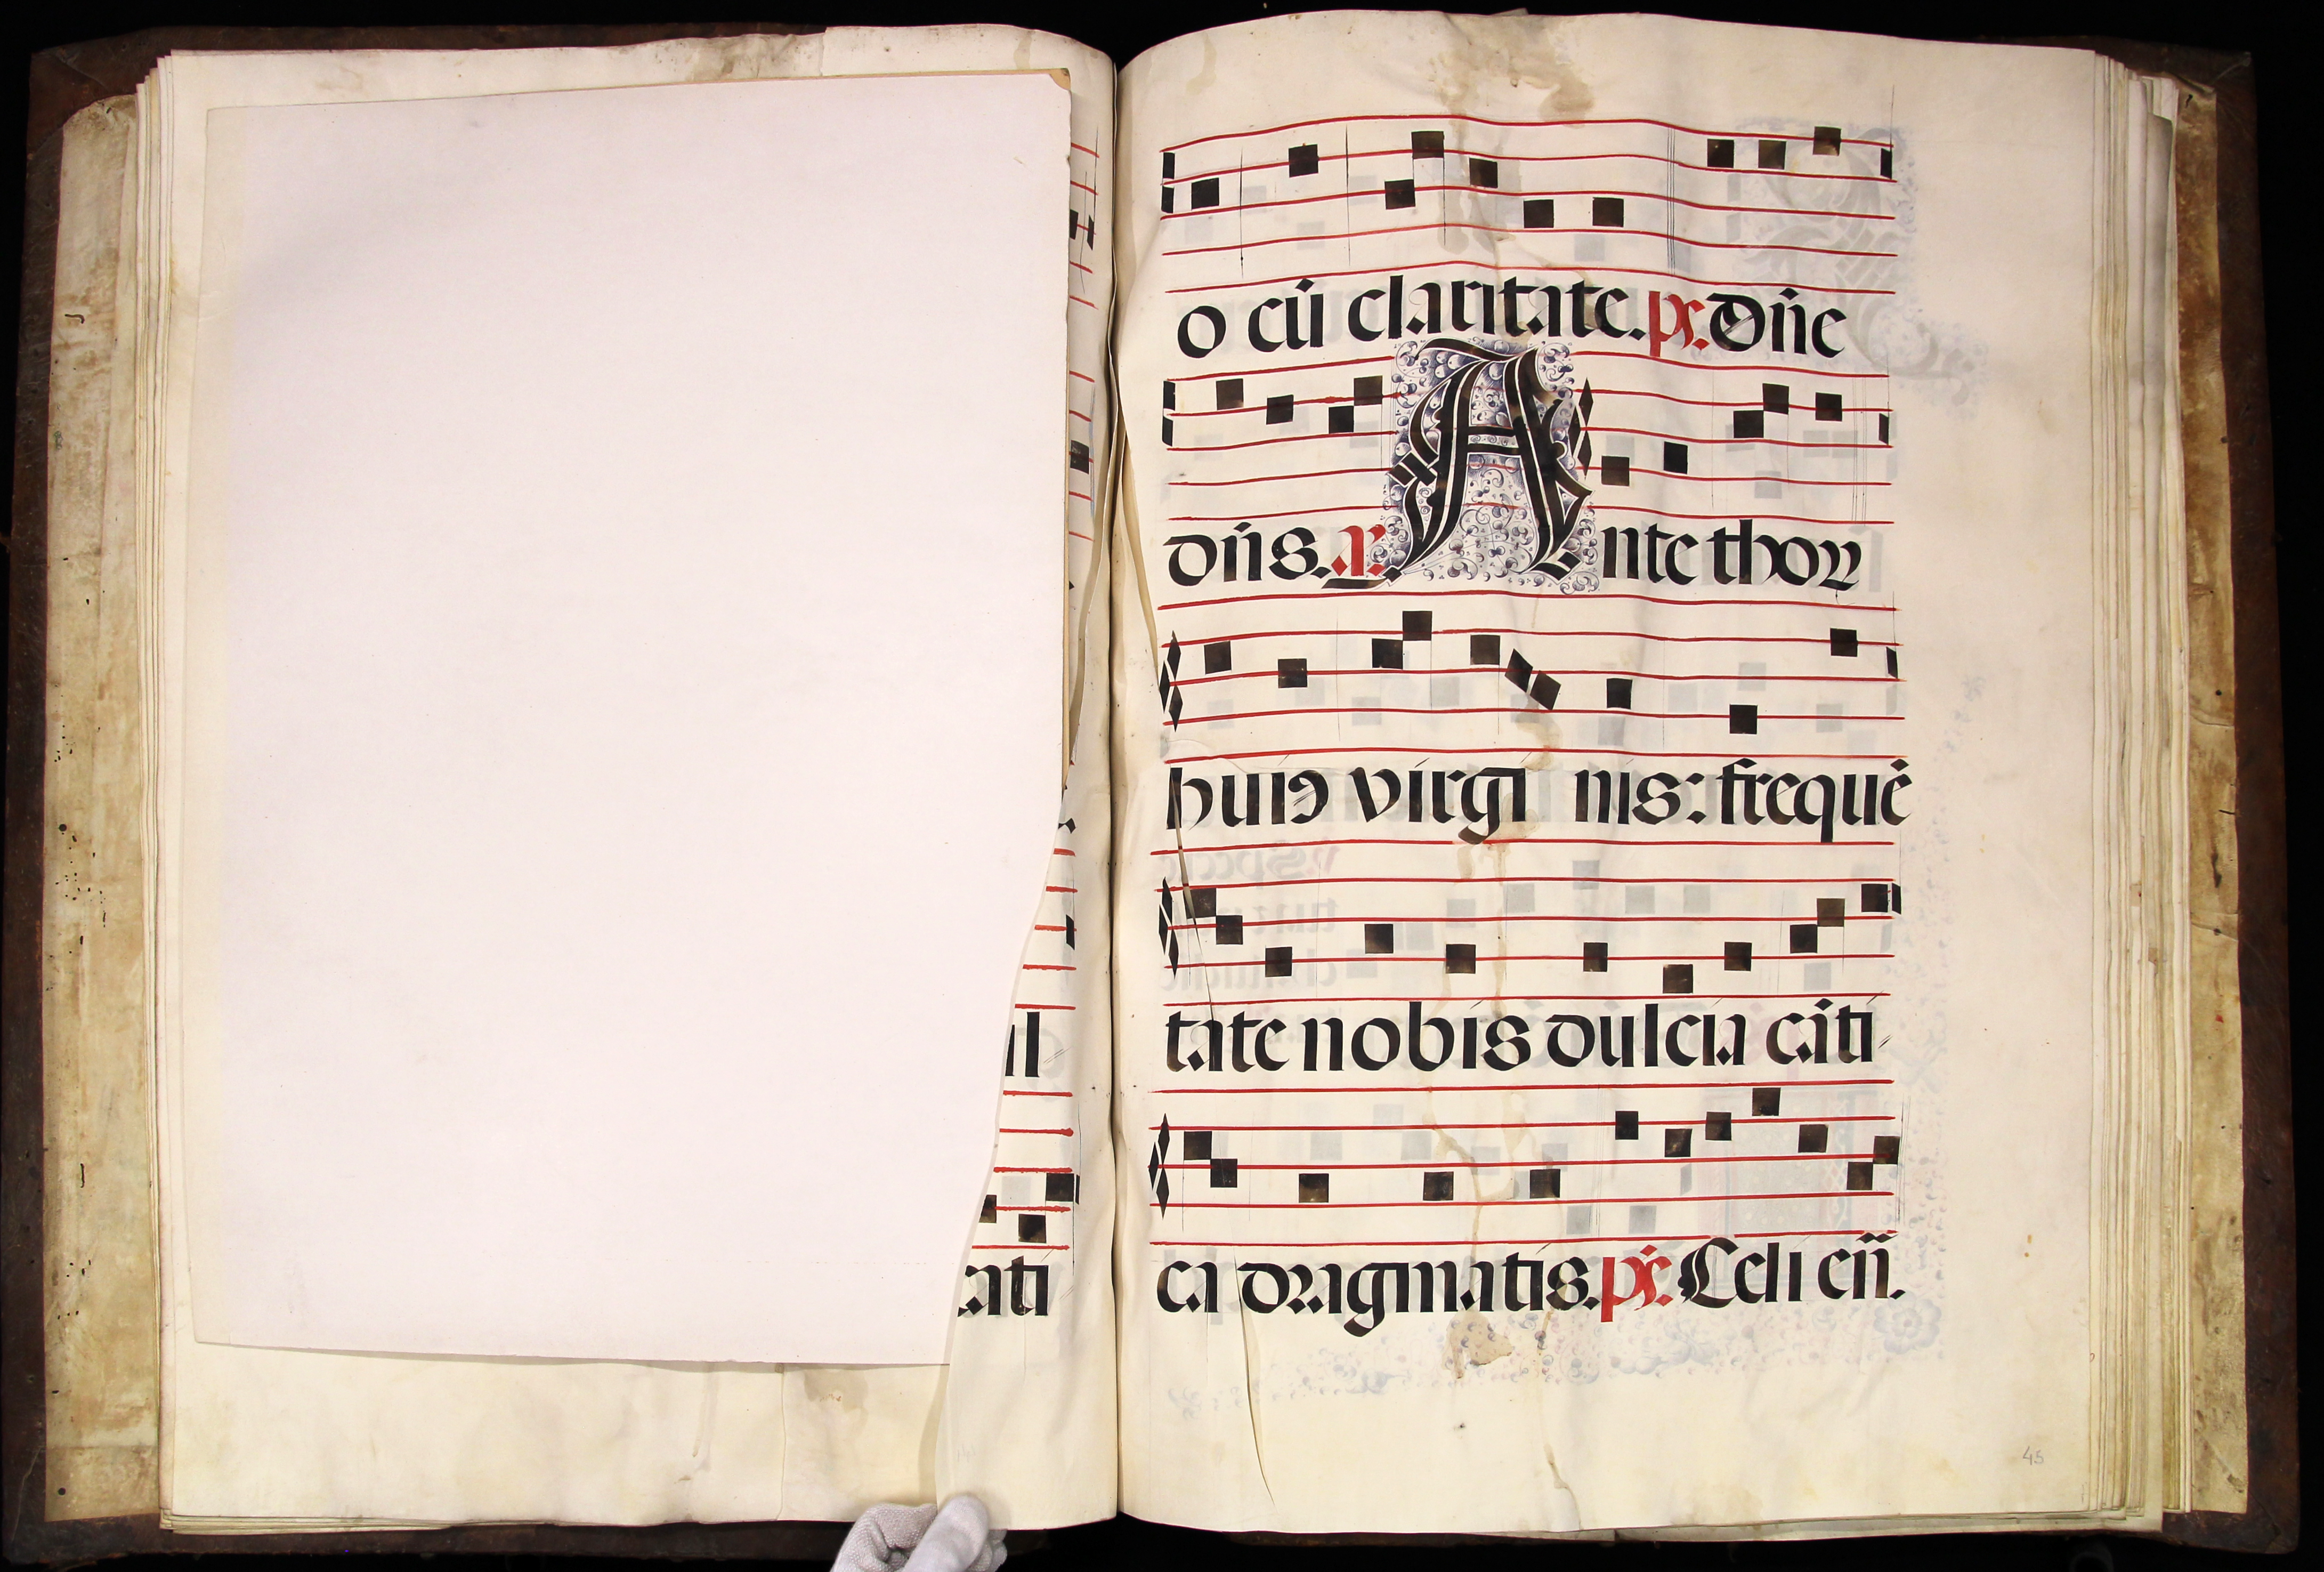 ul
cati
o cũ claritate. ps. Dñe
dñs. a. Ante thoꝝ
huiꝰ virgi nis: frequẽ
tate nobis dulcia cãti
ca dragmatis. ps. Celi eñ.
45